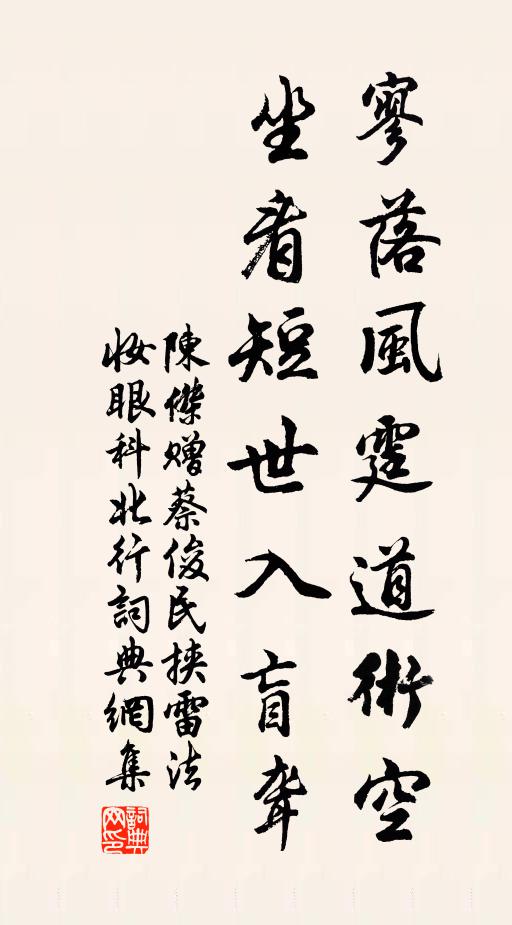 寥落風霆道術空
坐看短世入盲聾
陳傑贈蔡俊民挾雷法
妝眼科北行詞典網集
詞典
网印